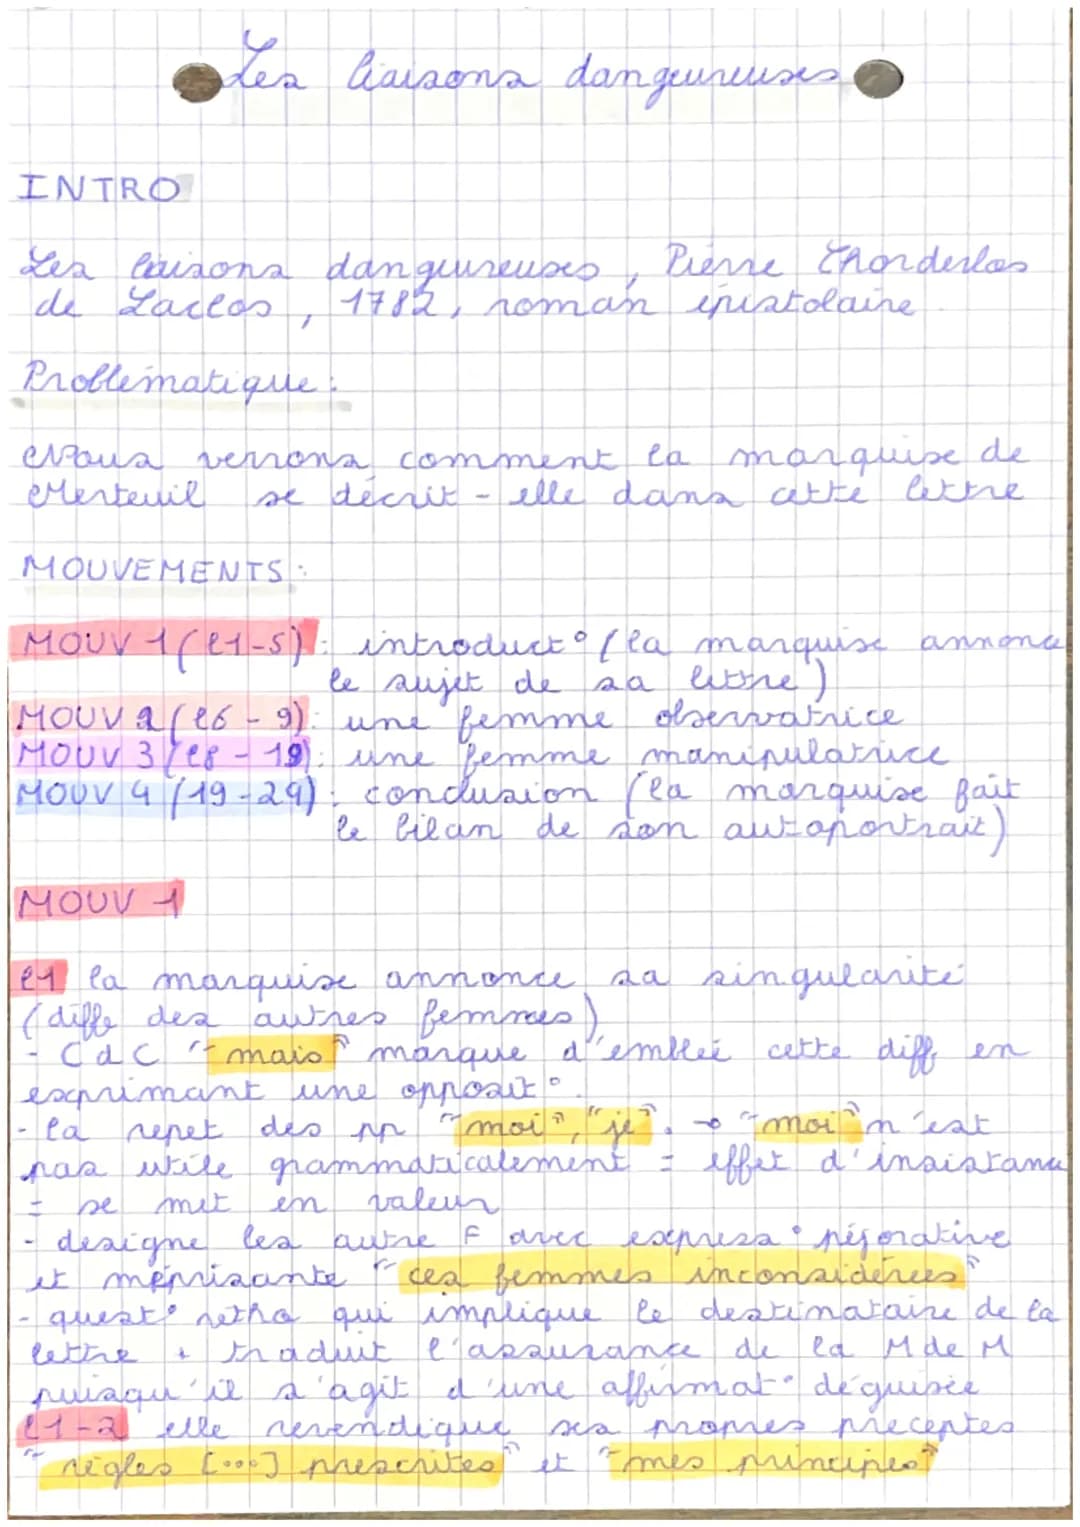 Les liaisons dangeureuses
INTRO
Les liaisons dangeureuses, Pierre Chorderlos
de Laclos, 1782, roman épistolaire.
Problématique :
Nous verrons comment la marquise de
Merteuil se décrit-elle dans cette lettre
MOUVEMENTS :
MOUV 1 (l1-5) : introduct° (la marquise annonce
le sujet de sa lettre)
MOUV 2 (l6-9) : une femme observatrice
MOUV 3 (l8-19) : une femme manipulatrice
MOUV 4 (19-29) : conclusion (la marquise fait
le bilan de son autoportrait)
MOUV 1
l1 la marquise annonce sa singularité
(diffe des autres femmes)
- CdC "mais" marque d'emblée cette diff en
exprimant une opposit°.
- la repet des pp "moi", "je". → "moi" n'est
pas utile grammaticalement = effet d'insistance
= se met en valeur
- designe les autre F avec express° péjorative
et méprisante "ces femmes inconsidérées"
- quest° rétho qui implique le destinataire de la
lettre + traduit l'assurance de la M de M
puisqu'il s'agit d'une affirmat° déguisée
l1-2 elle revendique ses propres préceptes
"règles [...] prescrites" et "mes principes"